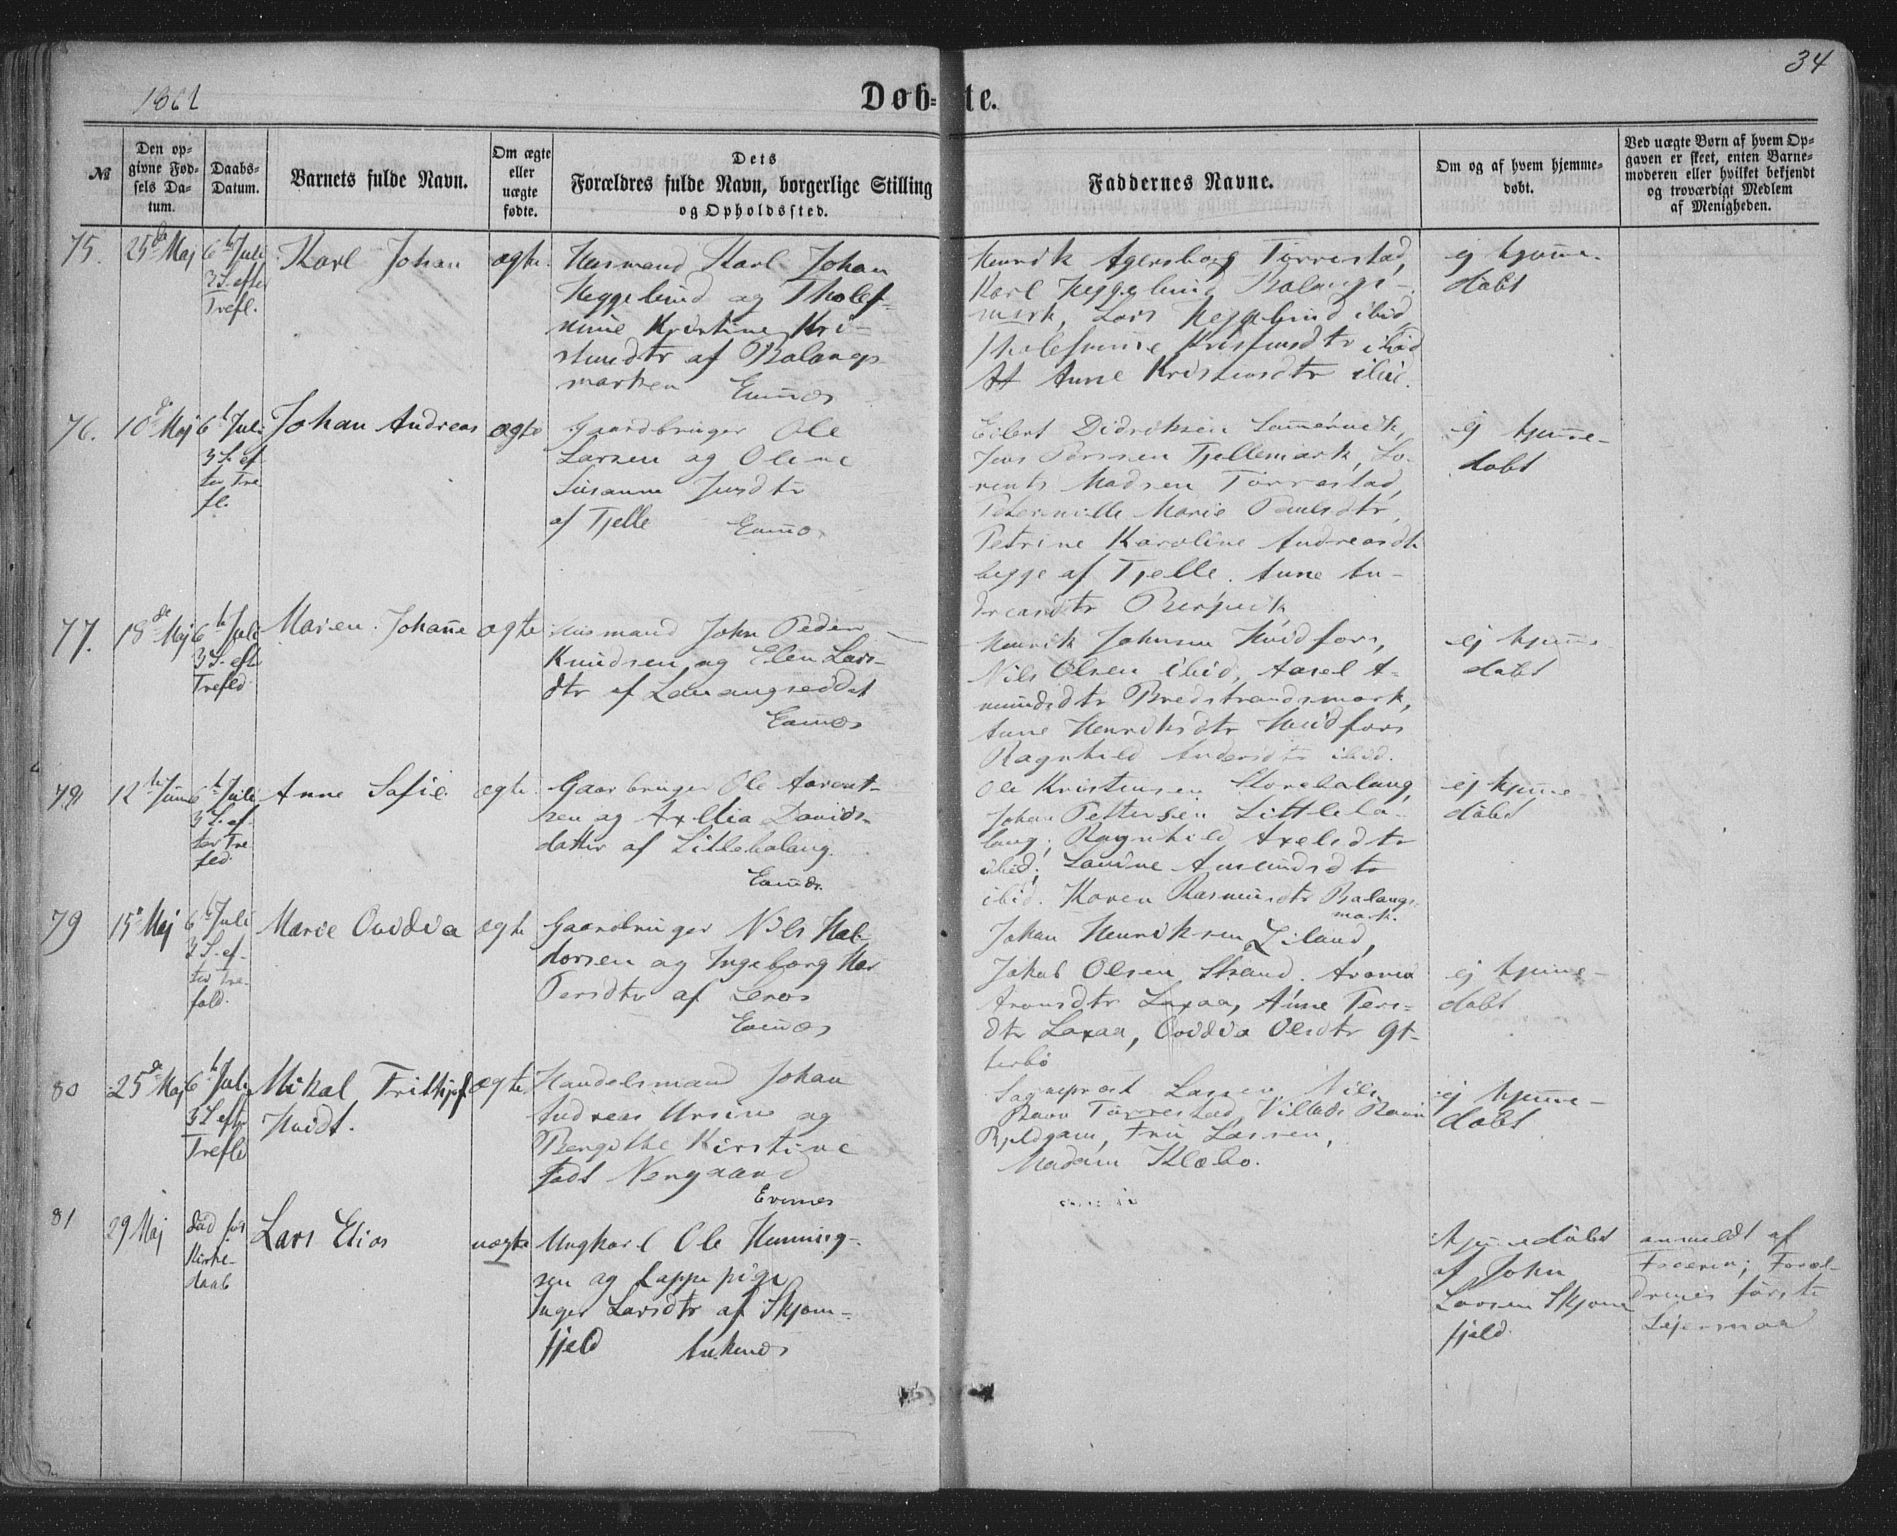 34
1862
Døb= te.
№
Den op-
givne Fød-
sels Da-
tum.
Daabs-
Datum.
Barnets fulde Navn.
Om ægte
eller
uægte
fødte.
Dets
Forældres fulde Navn, borgerlige Stilling
og Opholdssted.
Faddernes Navne.
Om og af hvem hjemme-
døbt.
Ved uægte Børn af hvem Op-
gaven er skeet, enten Barne-
moderen eller hvilket bekjendt
og troværdigt Medlem
af Menigheden.
75.
25de Maj
6te Juli
3 S. efter
Trefl.
Karl Johan
ægte
Husmand Karl Johan
Heggelund og Tholef-
sine Kristine Kri-
stensdtr af Balangs
marken Evenes
Henrik Agersborg Tørrestad,
Karl Heggelund Balangs-
mark, Lars Heggelund ibid
Tholefsinne Kristensdtr ibid
Anne Kristensdtr ibid.
ej hjeme-
døbt
76.
10de Maj
6te Juli
3 S. ef-
ter Tre
fl.
Johan Andreas
ægte
Gaardbruger Ole
Larsen og Oline
Susanne Jensdtr
af Tjelle Evenes
Eilert Didriksen Sommervik,
Jens Tjellemark, Lo-
rents Madsen Tørrestad,
Peternille Marie Paulsdtr,
Petrine Karoline Andreasdtr
begge af Tjelle. Anne An-
dreasdtr Bergvik
ej hjeme-
døbt
77.
18de Maj
6te Juli
3 S. eft
Trefld
Maren Johane
ægte
Husmand John Peder
Knudsen og Elen Lars-
dtr af Lavangseidet
Evenes
Henrik Johnsen Hvidfors,
Nils Olsen ibid, Aasel A-
mundsdtr Bredstrandsmark,
Anne Henriksdtr Hvidfors
Ragnhild Andersdtr ibid.
ej hjeme
døbt
78
12te Juni
6te Juli
3 S. ef-
ter Tre
fld.
Anne Sofie
ægte
Gaardbruger Ole Aarent-
sen og Axellia Davids-
datter af Littlebalang
Evenes
Ole Kristensen Storebalang,
Johan Pettersen Littleba-
lang, Ragnhild Axelsdtr
ibid, Lavine Amundsdtr
ibid. Karen Rasmusdtr Balangs
mark.
ej hjeme-
døbt
79
15de Maj
6te Juli
3 S. ef-
ter Tre-
fold.
Marie Ovidia
ægte
Gaardbruger Nils Hal-
dorsen og Ingeborg Mar
Persdtr af Lenes
Evenes
Johan Henriksen Liland,
Jakob Olsen Strand. Aronia
Aronsdtr Laxaa, Anne Pers-
dtr Laxaa, Ovidia Olsdtr Yt-
terbø
ej hjeme-
døbt
80
25de Maj
6te Juli
3 S. eftr
Trefld
Mikal Frithjof
Hvidt.
ægte
Handelsmand Johan
Andreas Ursin og
Bergithe Kirstine
født Normand
Evenes
Sognepræst Lassen, Nils
Ravn Tørrestad, Villads Ravn
Fru Lassen,
Madam Klæbo.
ej hjeme-
døbt
81
29 Maj
død før
Kirke-
daab
Lars Elias
uægte
Ungkarl Ole Henning-
sen og Lappepige
Inger Larsdtr af Skjom-
fjeld Ankenes
hjemedøbt
af John
Larsen Skjom
fjeld.
anmeldt af
Faderen; Foræl-
drenes første
Lejermaal